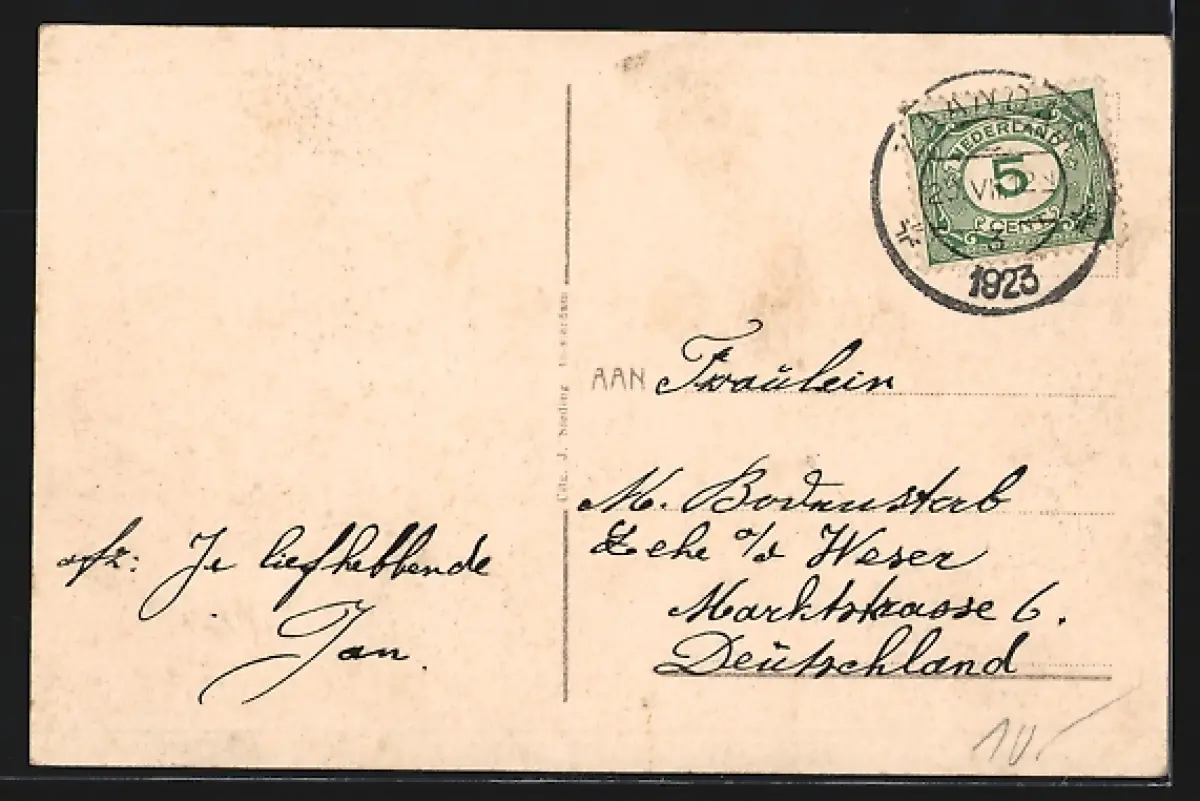 NEDERLAND
5
CENT
1923
AAN Fraülein
M. Bodenstab
Lehe a/d Weser
Marktstrasse 6.
Deütschland
afz: Je liefhebbende
Jan.
Uitg. J.
10.-